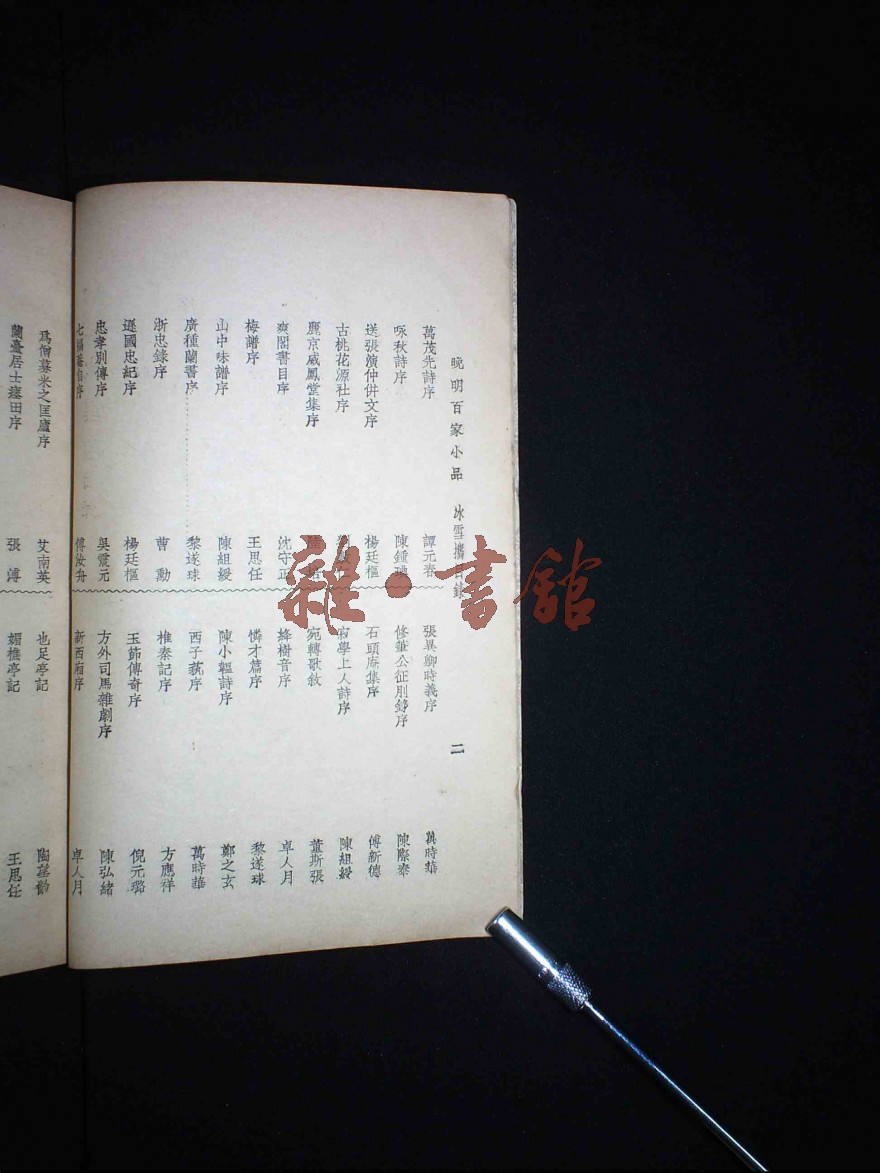 晚明百家小品　冰雪攜　目錄　二
萬茂先詩序　譚元春
咏秋詩序　陳鍾琠
送張濱仲併文序　楊廷樞
古桃花源社序
麗京威鳳堂集序
爽閣書目序　沈守正
梅譜序　王思任
山中味譜序　陳組綬
廣種蘭書序　黎遂球
浙忠錄序　曹勳
遜國忠紀序　楊廷樞
忠孝別傳序　吳震元
傅汝舟
張異卿時義序　萬時華
修華公征剐錚序　陳際泰
石頭庵集序　傅新德
寂學上人詩序　陳組綬
宛轉歌敘　董斯張
絳樹音序　卓人月
憐才篇序　黎遂球
陳小軀詩序　鄭之玄
西子蓺序　萬時華
椎秦記序　方應祥
玉節傳奇序　倪元璐
方外司馬雜劇序　陳弘緒
新西廂序　卓人月
爲僧募米之匡廬序　艾南英
蘭臺居士瘞田序　張溥
也足亭記　陶望齡
媚樵亭記　王思任
雜·書館